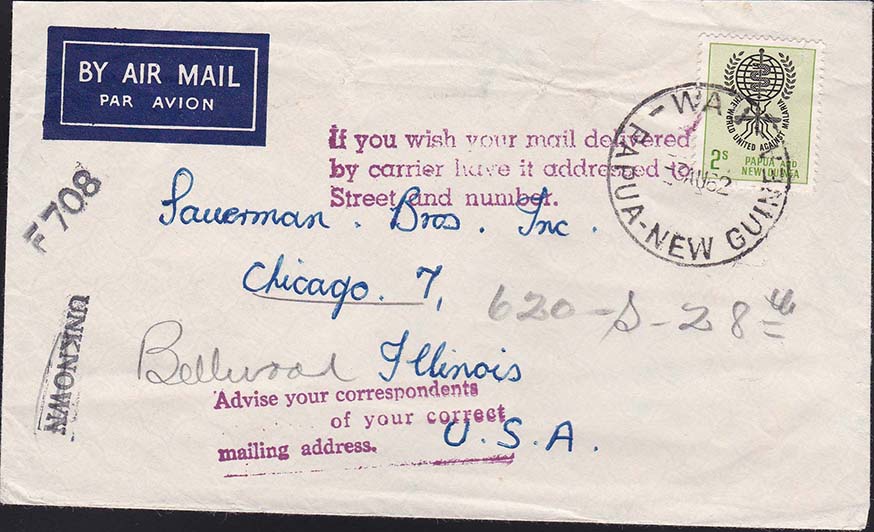 BY AIR MAIL
PAR AVION
THE WORLD UNITED AGAINST MALARIA
2S
PAPUA AND
NEW GUINEA
PAPUA-NEW GUINEA
AU62
If you wish your mail delivered
by carrier have it addressed to
Street and number.
F 708
Sauerman . Bros . Inc .
Chicago . 7,
620-S-28th
Bellwood Illinois
UNKNOWN
Advise your correspondents
of your correct
mailing address.
U.S.A.